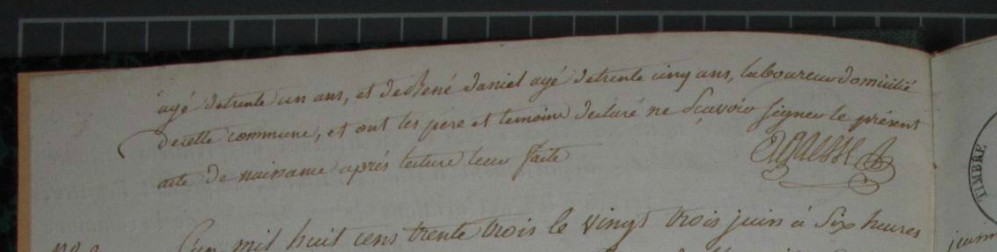 agé de trente un ans, et de René Daniel agé de trente cinq ans, laboureur domicilié
de cette commune, et ont les pere et temoins declaré ne Sçavoir Signer le présent
acte de naissance après lecture leur faite
L'an mil huit cens trente trois le vingt trois juin à Six heures
TIMBRE